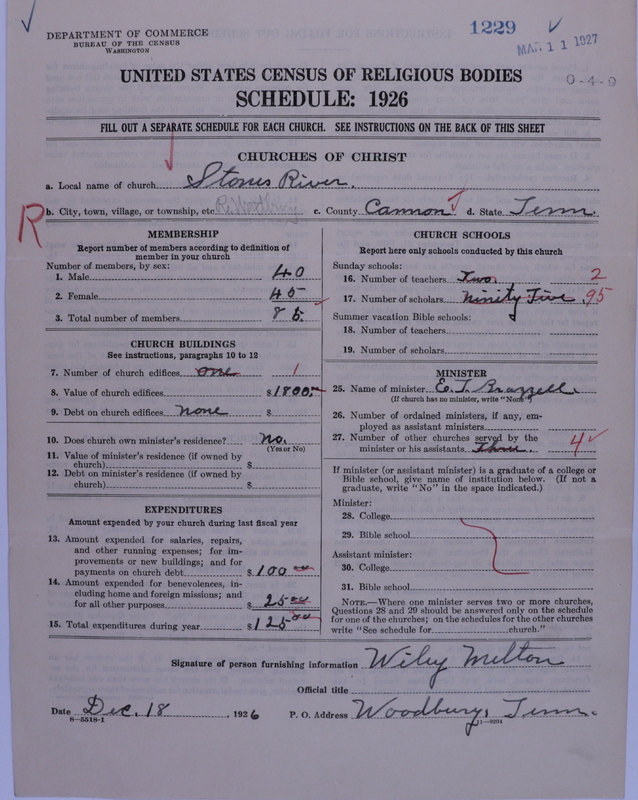 DEPARTMENT OF COMMERCE
BUREAU OF THE CENSUS
WASHINGTON
1229
MAR 11 1927
0-4-9
UNITED STATES CENSUS OF RELIGIOUS BODIES
SCHEDULE: 1926
FILL OUT A SEPARATE SCHEDULE FOR EACH CHURCH. SEE INSTRUCTIONS ON THE BACK OF THIS SHEET
CHURCHES OF CHRIST
a. Local name of church Stones River.
R b. City, town, village, or township, etc. c. County Cannon d. State Tenn.
MEMBERSHIP
Report number of members according to definition of
member in your church
Number of members, by sex:
1. Male 40
2. Female 45
3. Total number of members 85
CHURCH BUILDINGS
See instructions, paragraphs 10 to 12
7. Number of church edifices one 1
8. Value of church edifices $1800.
9. Debt on church edifices none $
10. Does church own minister's residence? no.
(Yes or No)
11. Value of minister's residence (if owned by
church) $
12. Debt on minister's residence (if owned by
church) $
EXPENDITURES
Amount expended by your church during last fiscal year
13. Amount expended for salaries, repairs,
and other running expenses; for im-
provements or new buildings; and for
payments on church debt $100.00
14. Amount expended for benevolences, in-
cluding home and foreign missions; and
for all other purposes $ 25.00
15. Total expenditures during year $125.00
CHURCH SCHOOLS
Report here only schools conducted by this church
Sunday schools:
16. Number of teachers Two. 2
17. Number of scholars Ninity Five 95
Summer vacation Bible schools:
18. Number of teachers
19. Number of scholars
MINISTER
25. Name of minister E. T. Brazzell
(If church has no minister, write "None")
26. Number of ordained ministers, if any, em-
ployed as assistant ministers
27. Number of other churches served by the
minister or his assistants Three 4
If minister (or assistant minister) is a graduate of a college or
Bible school, give name of institution below. (If not a
graduate, write "No" in the space indicated.)
Minister:
28. College
29. Bible school
Assistant minister:
30. College
31. Bible school
NOTE.—Where one minister serves two or more churches,
Questions 28 and 29 should be answered only on the schedule
for one of the churches; on the schedules for the other churches
write "See schedule for church."
Signature of person furnishing information Wiley Melton
Official title
Date Dec. 18, 1926 P. O. Address Woodbury, Tenn.
8—5518-1